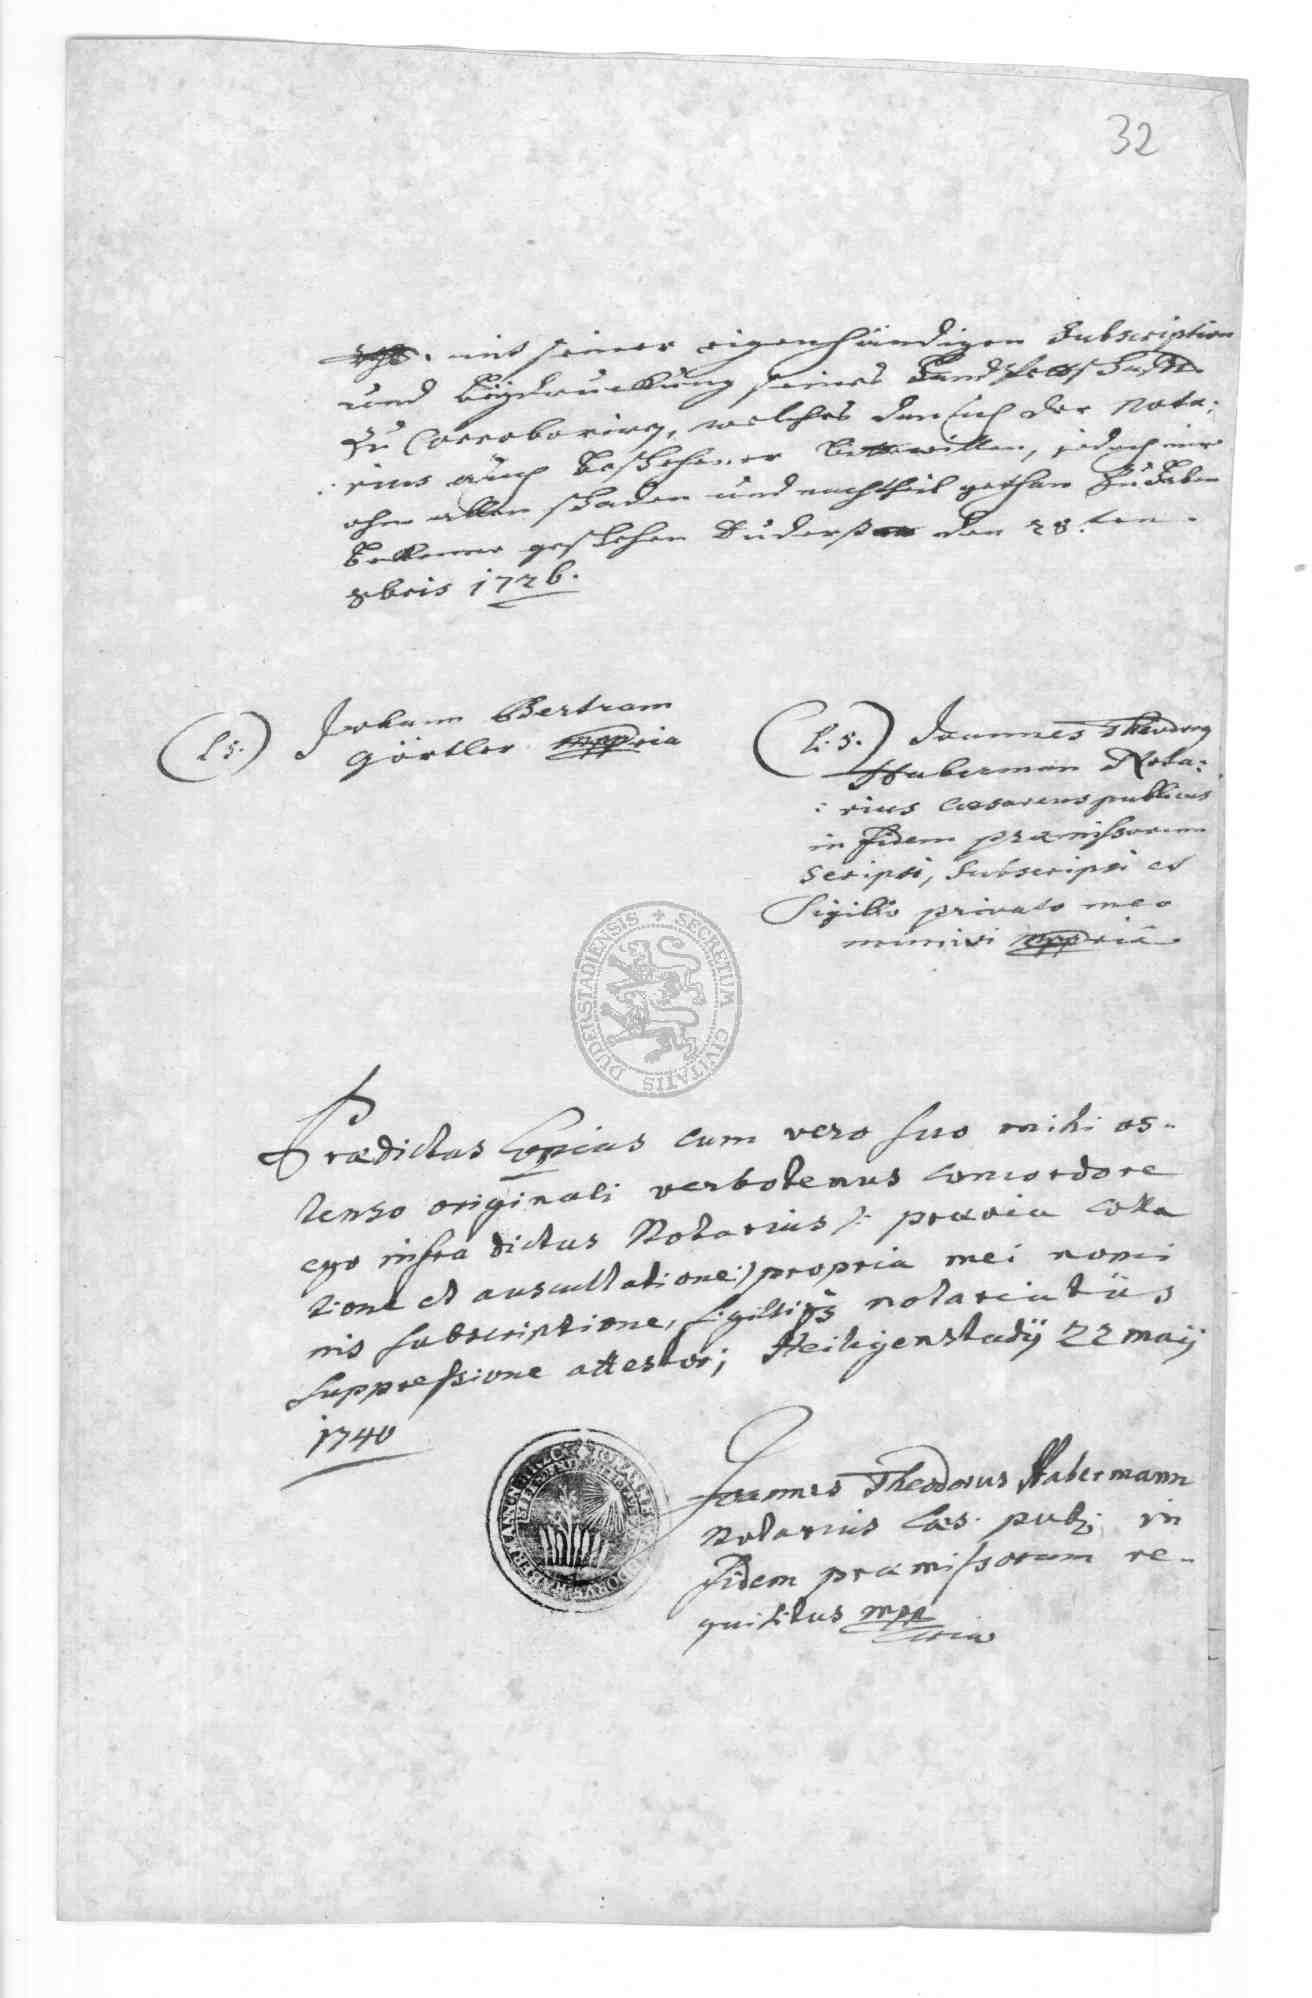 32
mit seiner eigenhändigen Subscription
und beydruckung seines
zu Corroborirn, welches den auch der Nota:
: rius auch beschehener bittewillen, jedoch mir
ohn allen schaden und nachtheil gethan zu haben
bekenne geschehen Duderstadt den 28.ten
8bris 1726.
(L S.) Johann Bertram
Görtler mppria
(L. S.) Joannes Theodorg
Huberman Nota:
: rius cæsareus publicus
in fidem præmissorum
scripsi, subscripsi et
Sigillo privato meo
munivi mppria
DUDERSTADIENSIS + SECRETUM CIVITATIS
Prædictas Copias cum vero suo mihi os-
tenso originali verbotenus concordare
ego infra dictus Notarius /: prævia Colla
tione et auscultatione:/ propria mei nomi
nis subscriptione, sigilliq3 notariatûs
suppressione attestor; Heiligenstadij 22 maij
1740
Joannes Theodorus Habermann
Notarius Cæs. publ; in
fidem præmissorum re-
quisitus mpp
ria